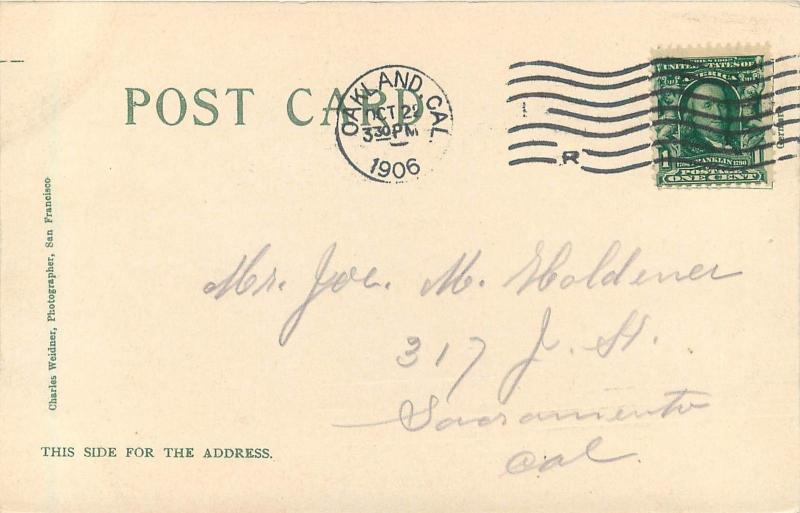 POST CARD
OAKLAND, CAL.
OCT 22
3 30 PM
1906
R
SERIES 1902
UNITED STATES OF
AMERICA
FRANKLIN
POSTAGE
ONE CENT
Germany
Charles Weidner, Photographer, San Francisco
Mr. Joe. M. Holdener
317 J. St.
Sacramento
Cal.
THIS SIDE FOR THE ADDRESS.